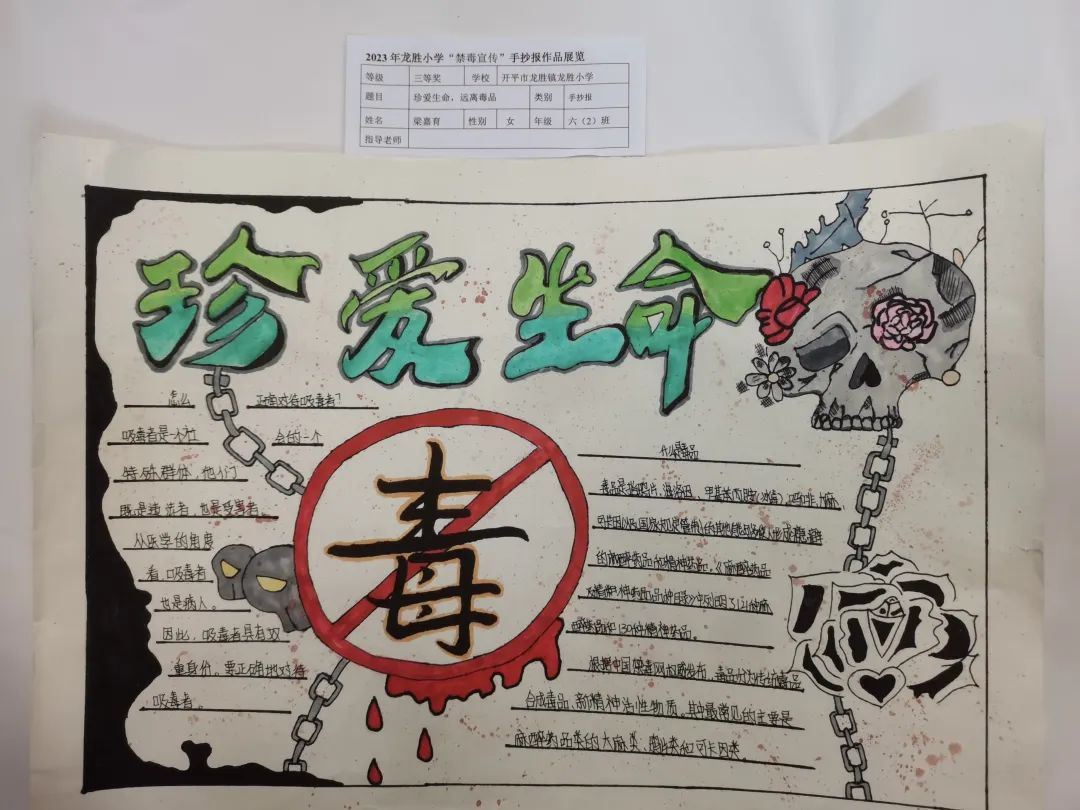 2023年龙胜小学“禁毒宣传”手抄报作品展览
等级 三等奖 学校 开平市龙胜镇龙胜小学
题目 珍爱生命，远离毒品 类别 手抄报
姓名 梁嘉育 性别 女 年级 六（2）班
指导老师
珍爱生命
怎么 正确对待吸毒者？
吸毒者是一个社 会的一个
特殊群体，他们
既是违法者，也是受害者。
从医学的角度
看，吸毒者
也是病人。
因此，吸毒者具有双
重身份。要正确地对待
吸毒者。
毒
什么是毒品
毒品是指鸦片、海洛因、甲基苯丙胺（冰毒）、吗啡、大麻、
可卡因以及国家规定管制的其他能够使人形成瘾癖
的麻醉药品和精神药品。《麻醉药品
及精神药品品种目录》中列明了121种麻
醉药品和130种精神药品。
根据中国禁毒网权威发布，毒品分为传统毒品、
合成毒品、新精神活性物质。其中最常见的主要是
麻醉药品类的大麻类、鸦片类和可卡因类。